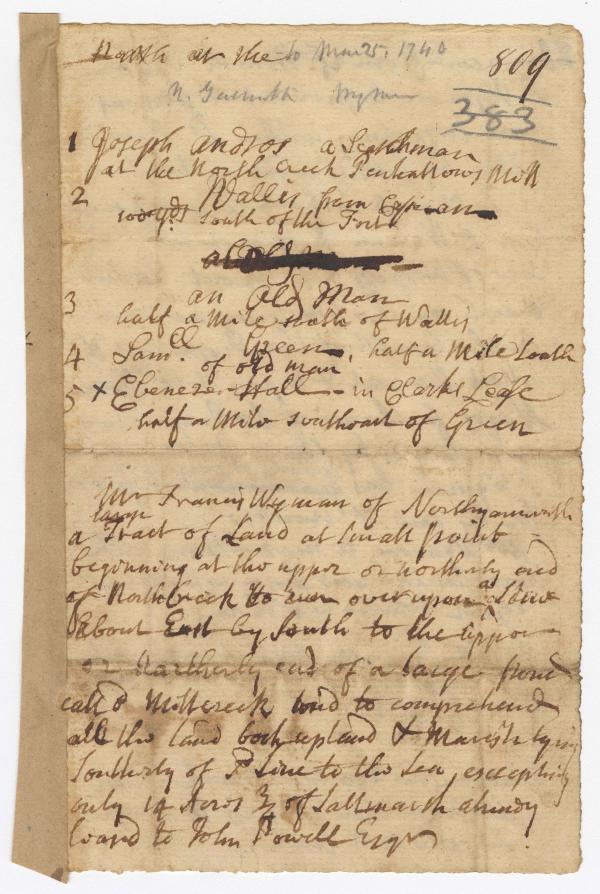 at the to Mar 25, 1740
809
N. Wyman
383
1 Joseph Andros a Scotchman
at the North Creek Penhallows Mill
2 Wallis from
100 yds South of the Fort
3 an Old Man
half a Mile south of Wallis
4 Samll Green, half a Mile South
of old man
5 x Ebenezer Hall - in Clarks Lease
half a Mile southeast of Green
Mr Francis Wyman of Northyarmouth
a large Tract of Land at Small point
beginning at the upper or northerly end
of North Creek to run over upon a Line
About East by South to the upper
or Northerly end of a large pond
call'd Millcreek and to comprehend
all the Land both upland & Marish lying
Southerly of sd Line to the Sea, excepting
only 14 Acres 3/4 of Saltmarsh already
leased to John Powell Esqr